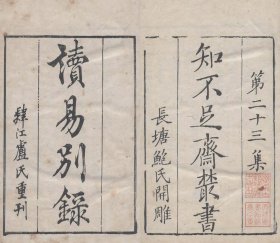 第二十三集
知不足齋叢書
長塘鮑氏開雕
讀易別錄
盧氏重刊